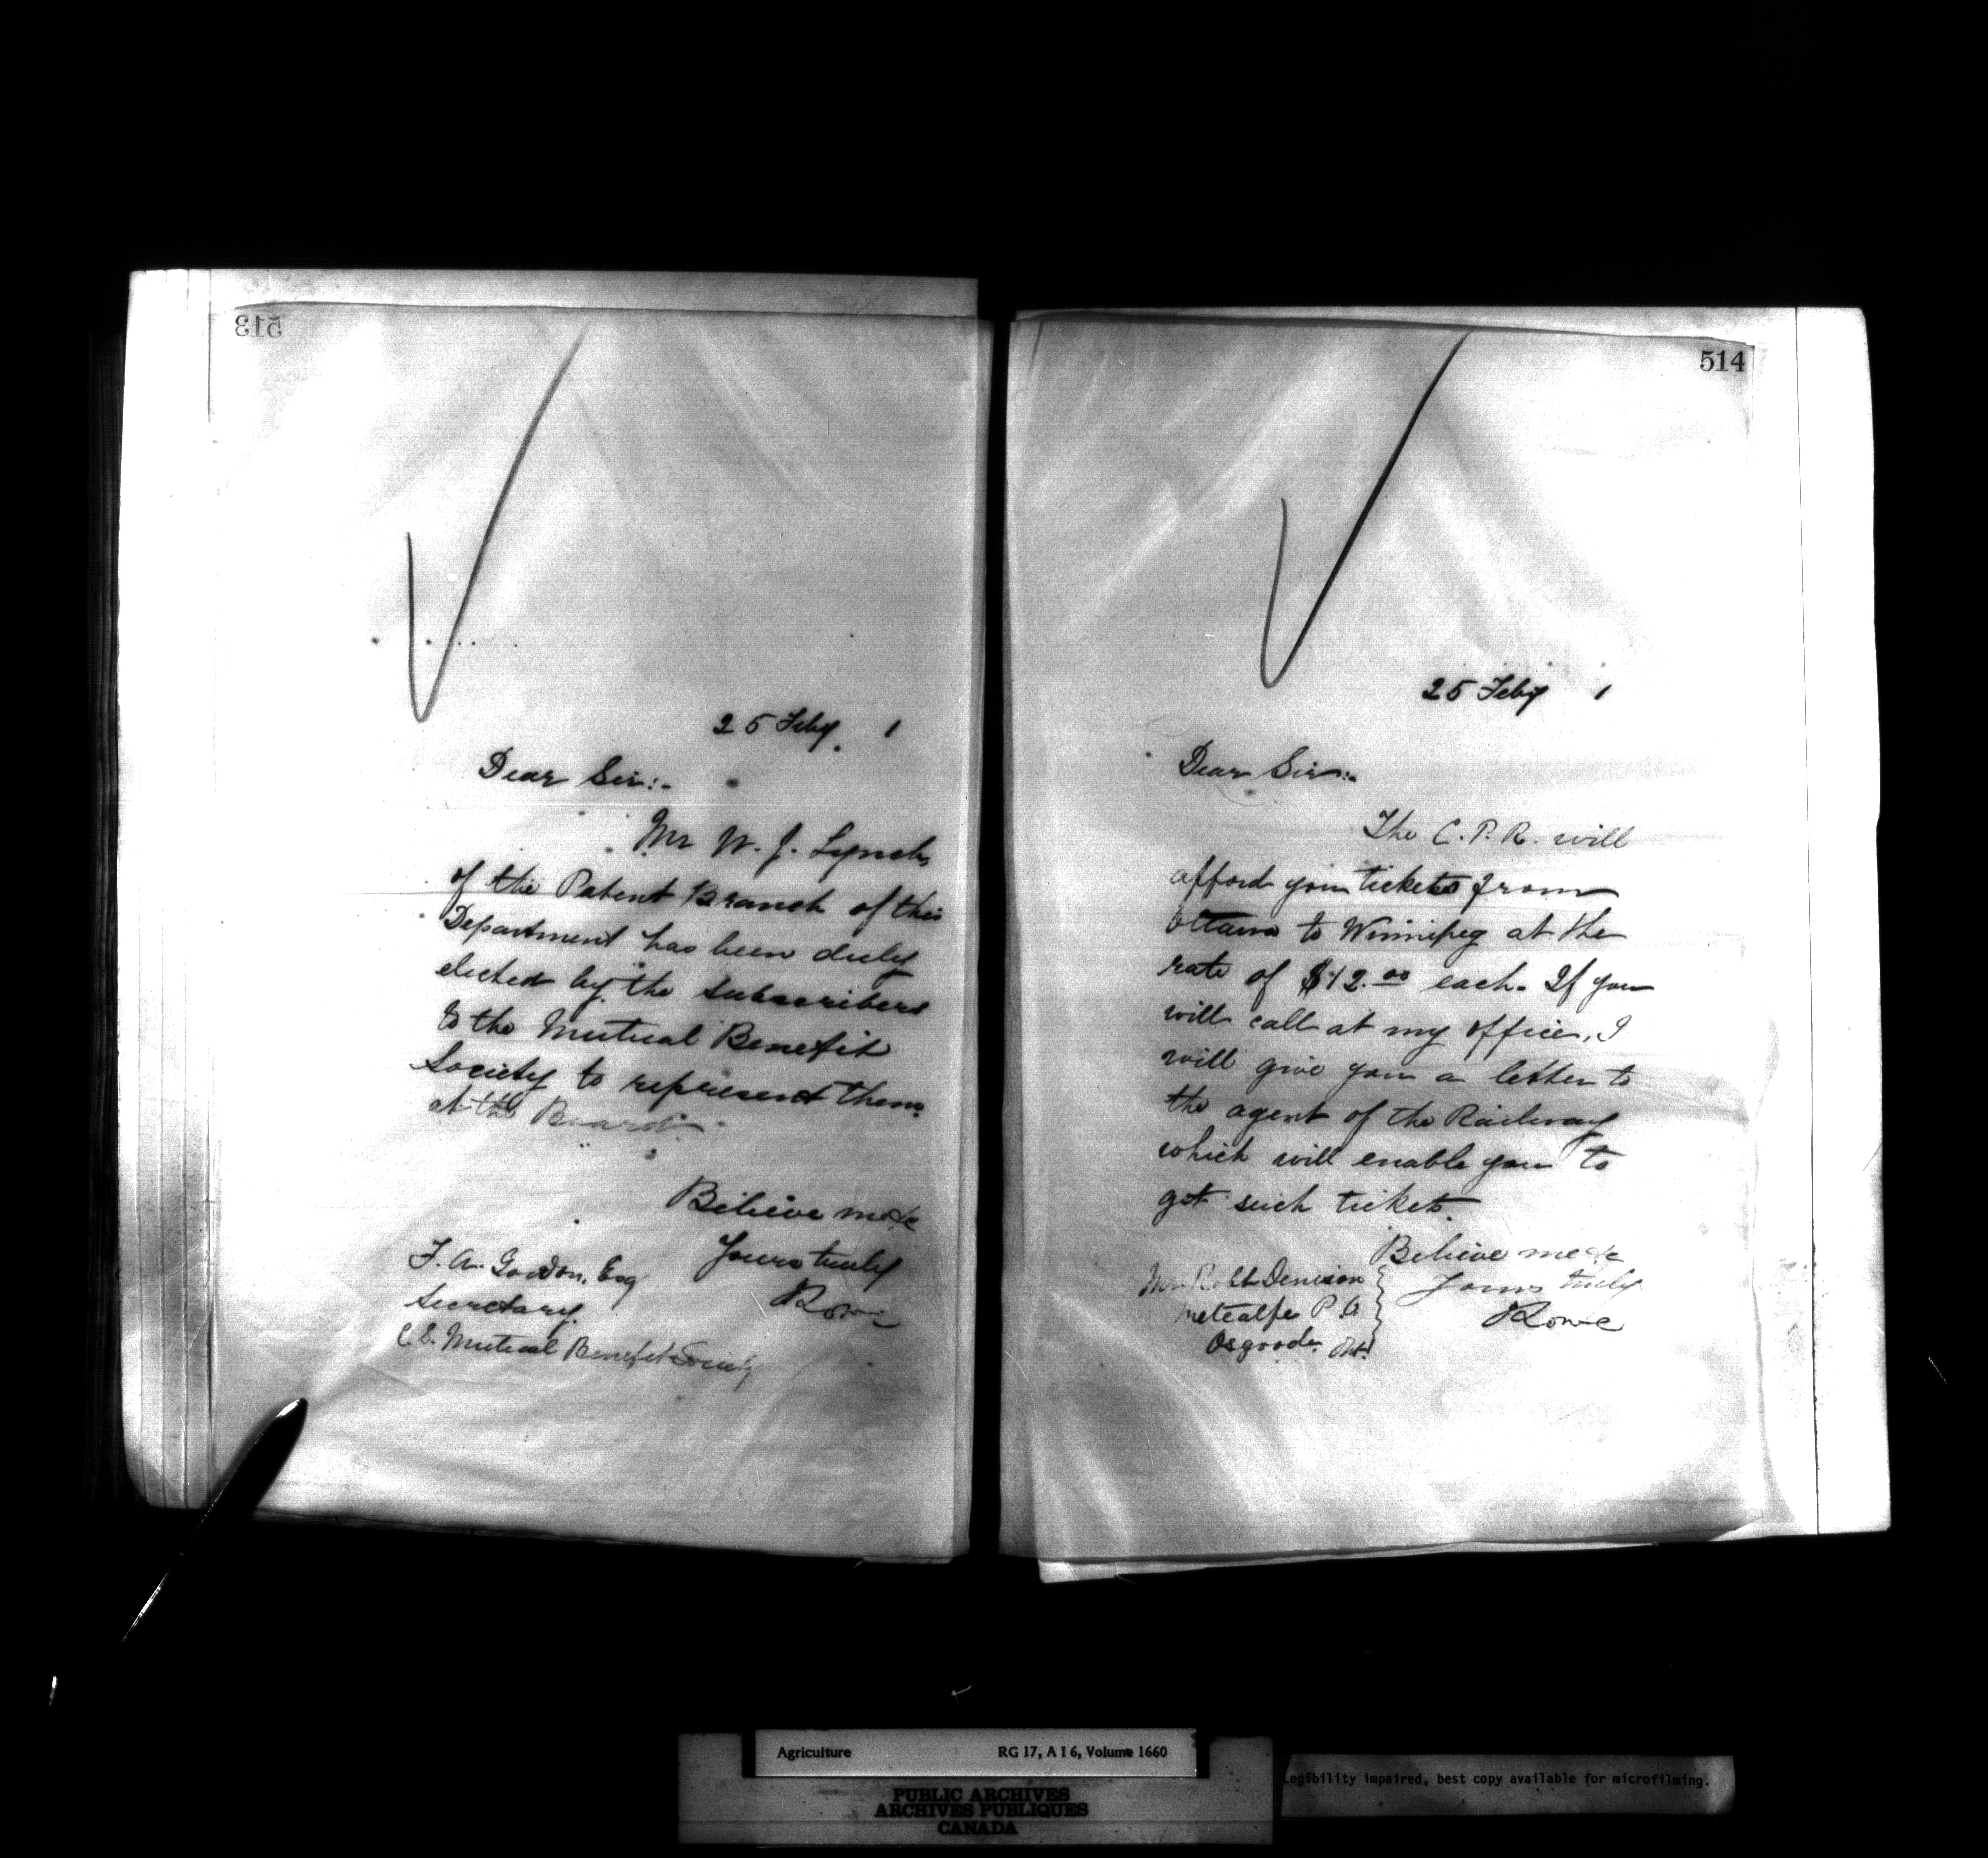 513
25 Feby. 1
Dear Sir:-
Mr W. J. Lynch
of the Patent Branch of this
Department has been duly
elected by the subscribers
to the Mutual Benefit
Society to represent them
at the Board.
Believe me &c
Yours truly
F. A. Gordon, Esq
Secretary.
C. S. Mutual Benefit Society
514
25 Feby 1
Dear Sir:-
The C. P. R. will
afford you tickets from
Ottawa to Winnipeg at the
rate of $12.00 each. If you
will call at my office, I
will give you a letter to
the agent of the Railway
which will enable you to
get such ticket.
Believe me &c
Yours truly
Mr Robt Denison
Metcalfe P. O
Osgoode. Ont.
Agriculture RG 17, A I 6, Volume 1660
PUBLIC ARCHIVES
ARCHIVES PUBLIQUES
CANADA
Legibility impaired, best copy available for microfilming.